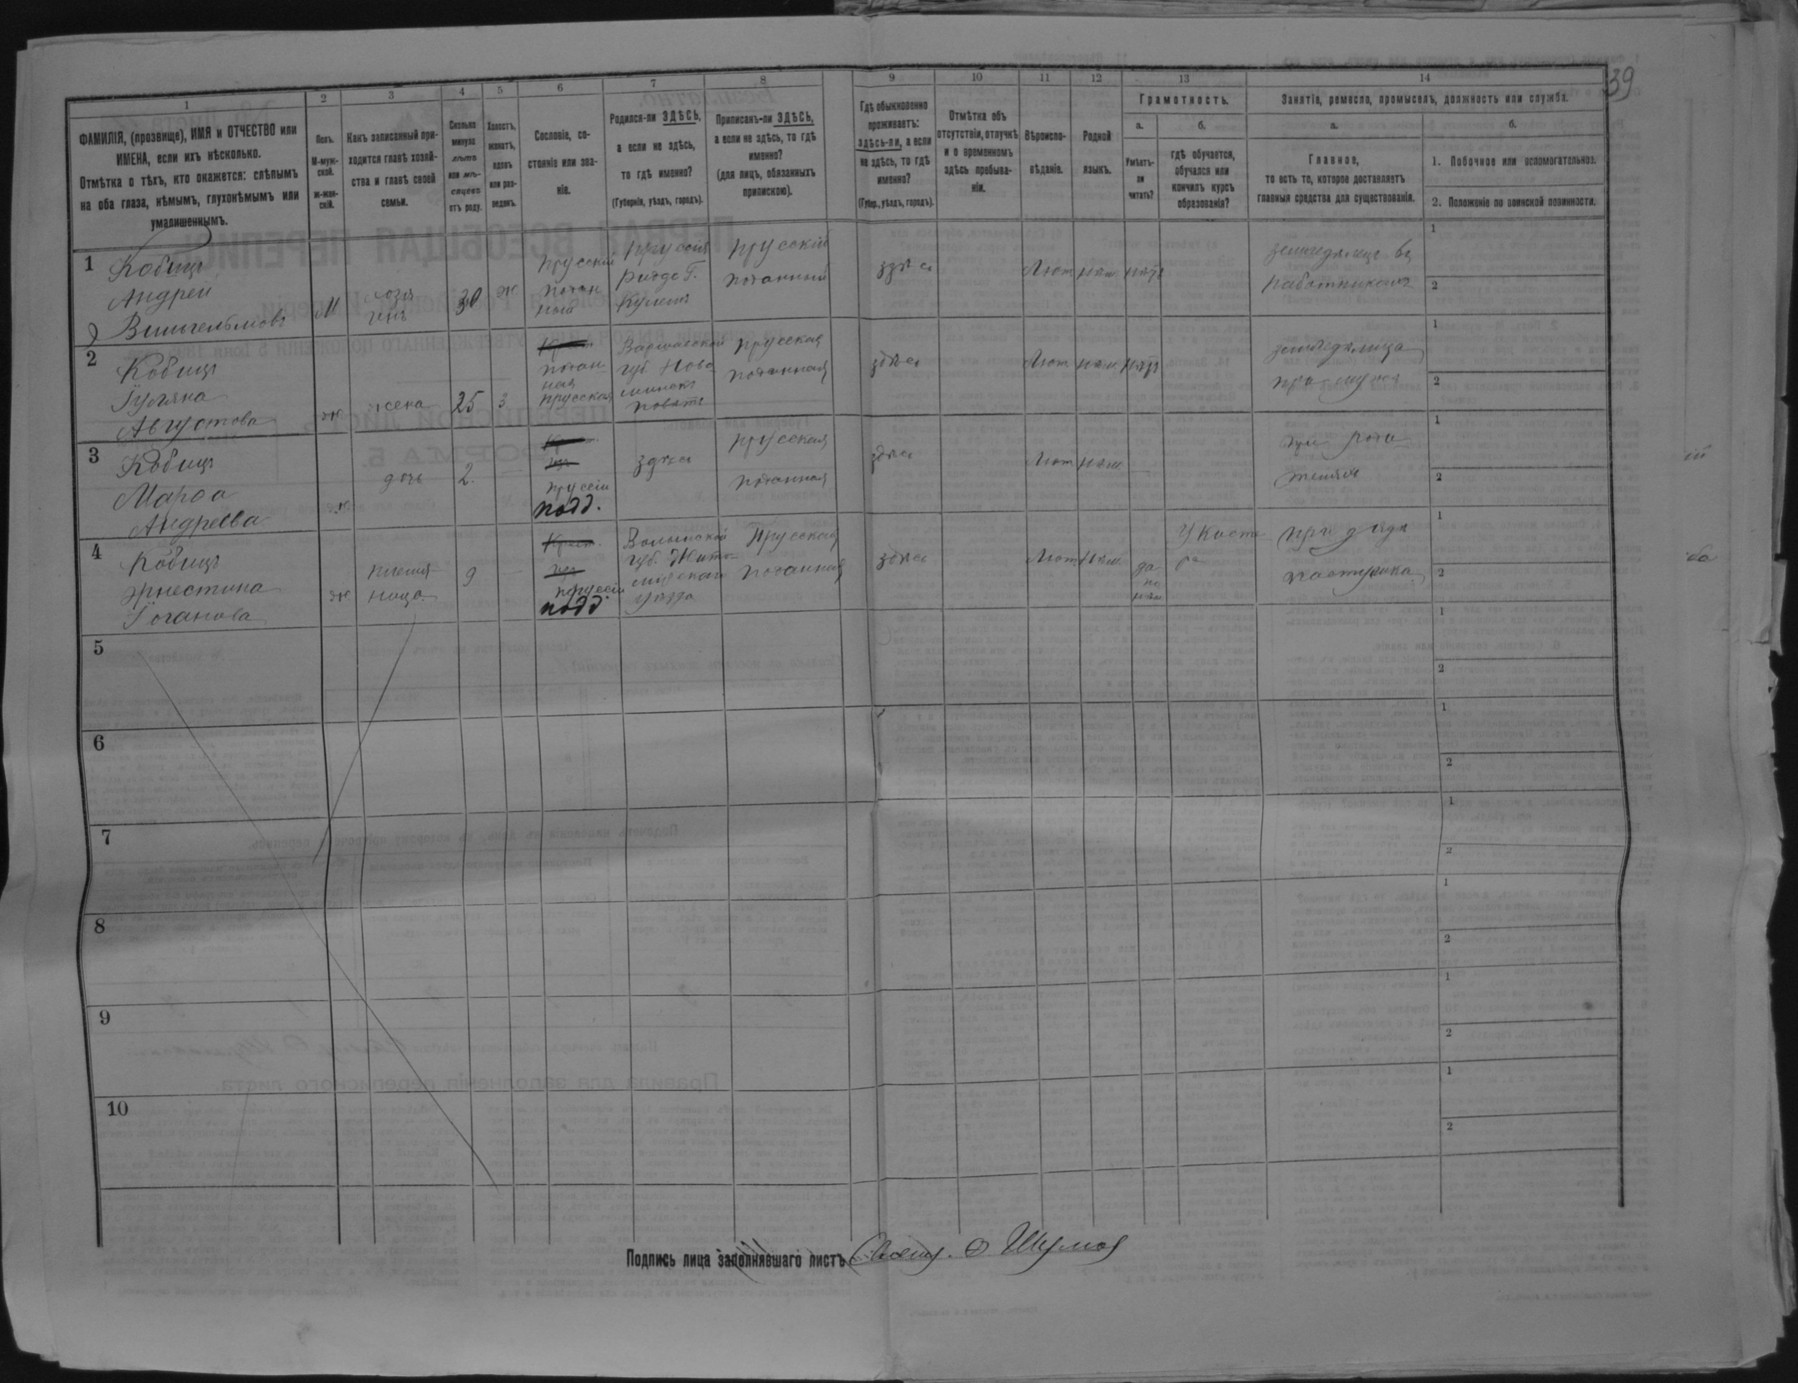 39
1 2 3 4 5 6 7 8 9 10 11 12 13 14
ФАМИЛІЯ, (прозвище), ИМЯ и ОТЧЕСТВО или
ИМЕНА, если ихъ нѣсколько.
Отмѣтка о тѣхъ, кто окажется: слѣпымъ
на оба глаза, нѣмымъ, глухонѣмымъ или
умалишеннымъ.
Полъ.
М-муж-
ской.
Ж-жен-
скій.
Какъ записанный при-
ходится главѣ хозяй-
ства и главѣ своей
семьи.
Сколько
минуло
лѣтъ
или мѣ-
сяцевъ
отъ роду.
Холостъ,
женатъ,
вдовъ
или раз-
веденъ.
Сословіе, со-
стояніе или зва-
ніе.
Родился-ли ЗДѢСЬ,
а если не здѣсь,
то гдѣ именно?
(Губернія, уѣздъ, городъ).
Приписанъ-ли ЗДѢСЬ,
а если не здѣсь, то гдѣ
именно?
(для лицъ, обязанныхъ
припискою).
Гдѣ обыкновенно
проживаетъ:
здѣсь-ли, а если
не здѣсь, то гдѣ
именно?
(Губер., уѣздъ, городъ).
Отмѣтка объ
отсутствіи, отлучкѣ
и о временномъ
здѣсь пребыва-
ніи.
Вѣроиспо-
вѣданіе.
Родной
языкъ.
Грамотность.
а.
Умѣетъ-
ли
читать?
б.
гдѣ обучается,
обучался или
кончилъ курсъ
образованія?
Занятія, ремесла, промыселъ, должность или служба.
а.
Главное,
то есть то, которое доставляетъ
главныя средства для существованія.
б.
1. Побочное или вспомогательное.
2. Положеніе по воинской повинности.
1
Кобицъ
Андрей
М
хозя
инъ
30
ж
прусскій
подан
ный
Пруссія
прусскій
поданный
здѣсь
Лют
нѣм
нѣтъ
1
2
2
Кобицъ
Юляна
Августова
ж
жена
25
з
подан
ная
прусская
Варшавской
губ. Ново
минскъ
повятъ
прусская
поданная
здѣсь
Лют
нѣм
нѣтъ
1
2
3
Кобицъ
Андреева
ж
дочь
2.
пруссіи
подд.
здѣсь
прусская
поданная
здѣсь
Лют
нѣм
1
2
4
Кобицъ
Эрнестина
Юганова
ж
племян
ница
9
пруссіи
подд.
Волынской
губ. Жито-
мірскаго
уѣзда
Прусская
поданная
здѣсь
Лют
нѣм
да
по
нѣм
при дядѣ
пастушка
1
2
5
1
2
6
1
2
7
1
2
8
1
2
9
1
2
10
1
2
Подпись лица заполнявшаго листъ